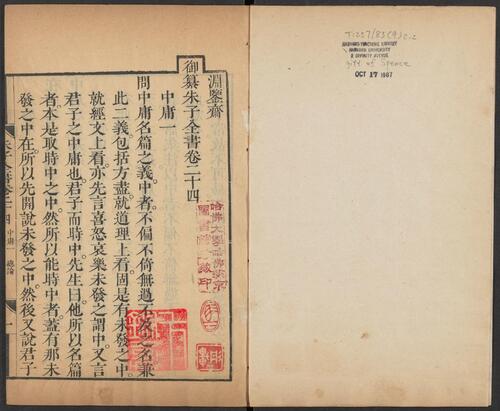 淵鑒齋
御纂朱子全書卷二十四
中庸一
問中庸名篇之義中者不偏不倚無過不及之名兼
此二義包括方盡就道理上看固是有未發之中
就經文上看亦先言喜怒哀樂未發之謂中又言
君子之中庸也君子而時中先生曰他所以名篇
者本是取時中之中然所以能時中者蓋有那未
發之中在所以先開說未發之中然後又說君子
朱子全書卷二十四 中庸一 總論 一
哈佛大學哈佛燕京
圖書館藏印
T1227/83(9) c.2
HARVARD-YENCHING LIBRARY
HARVARD UNIVERSITY
2 DIVINITY AVENUE
gift of Spence
OCT 17 1987